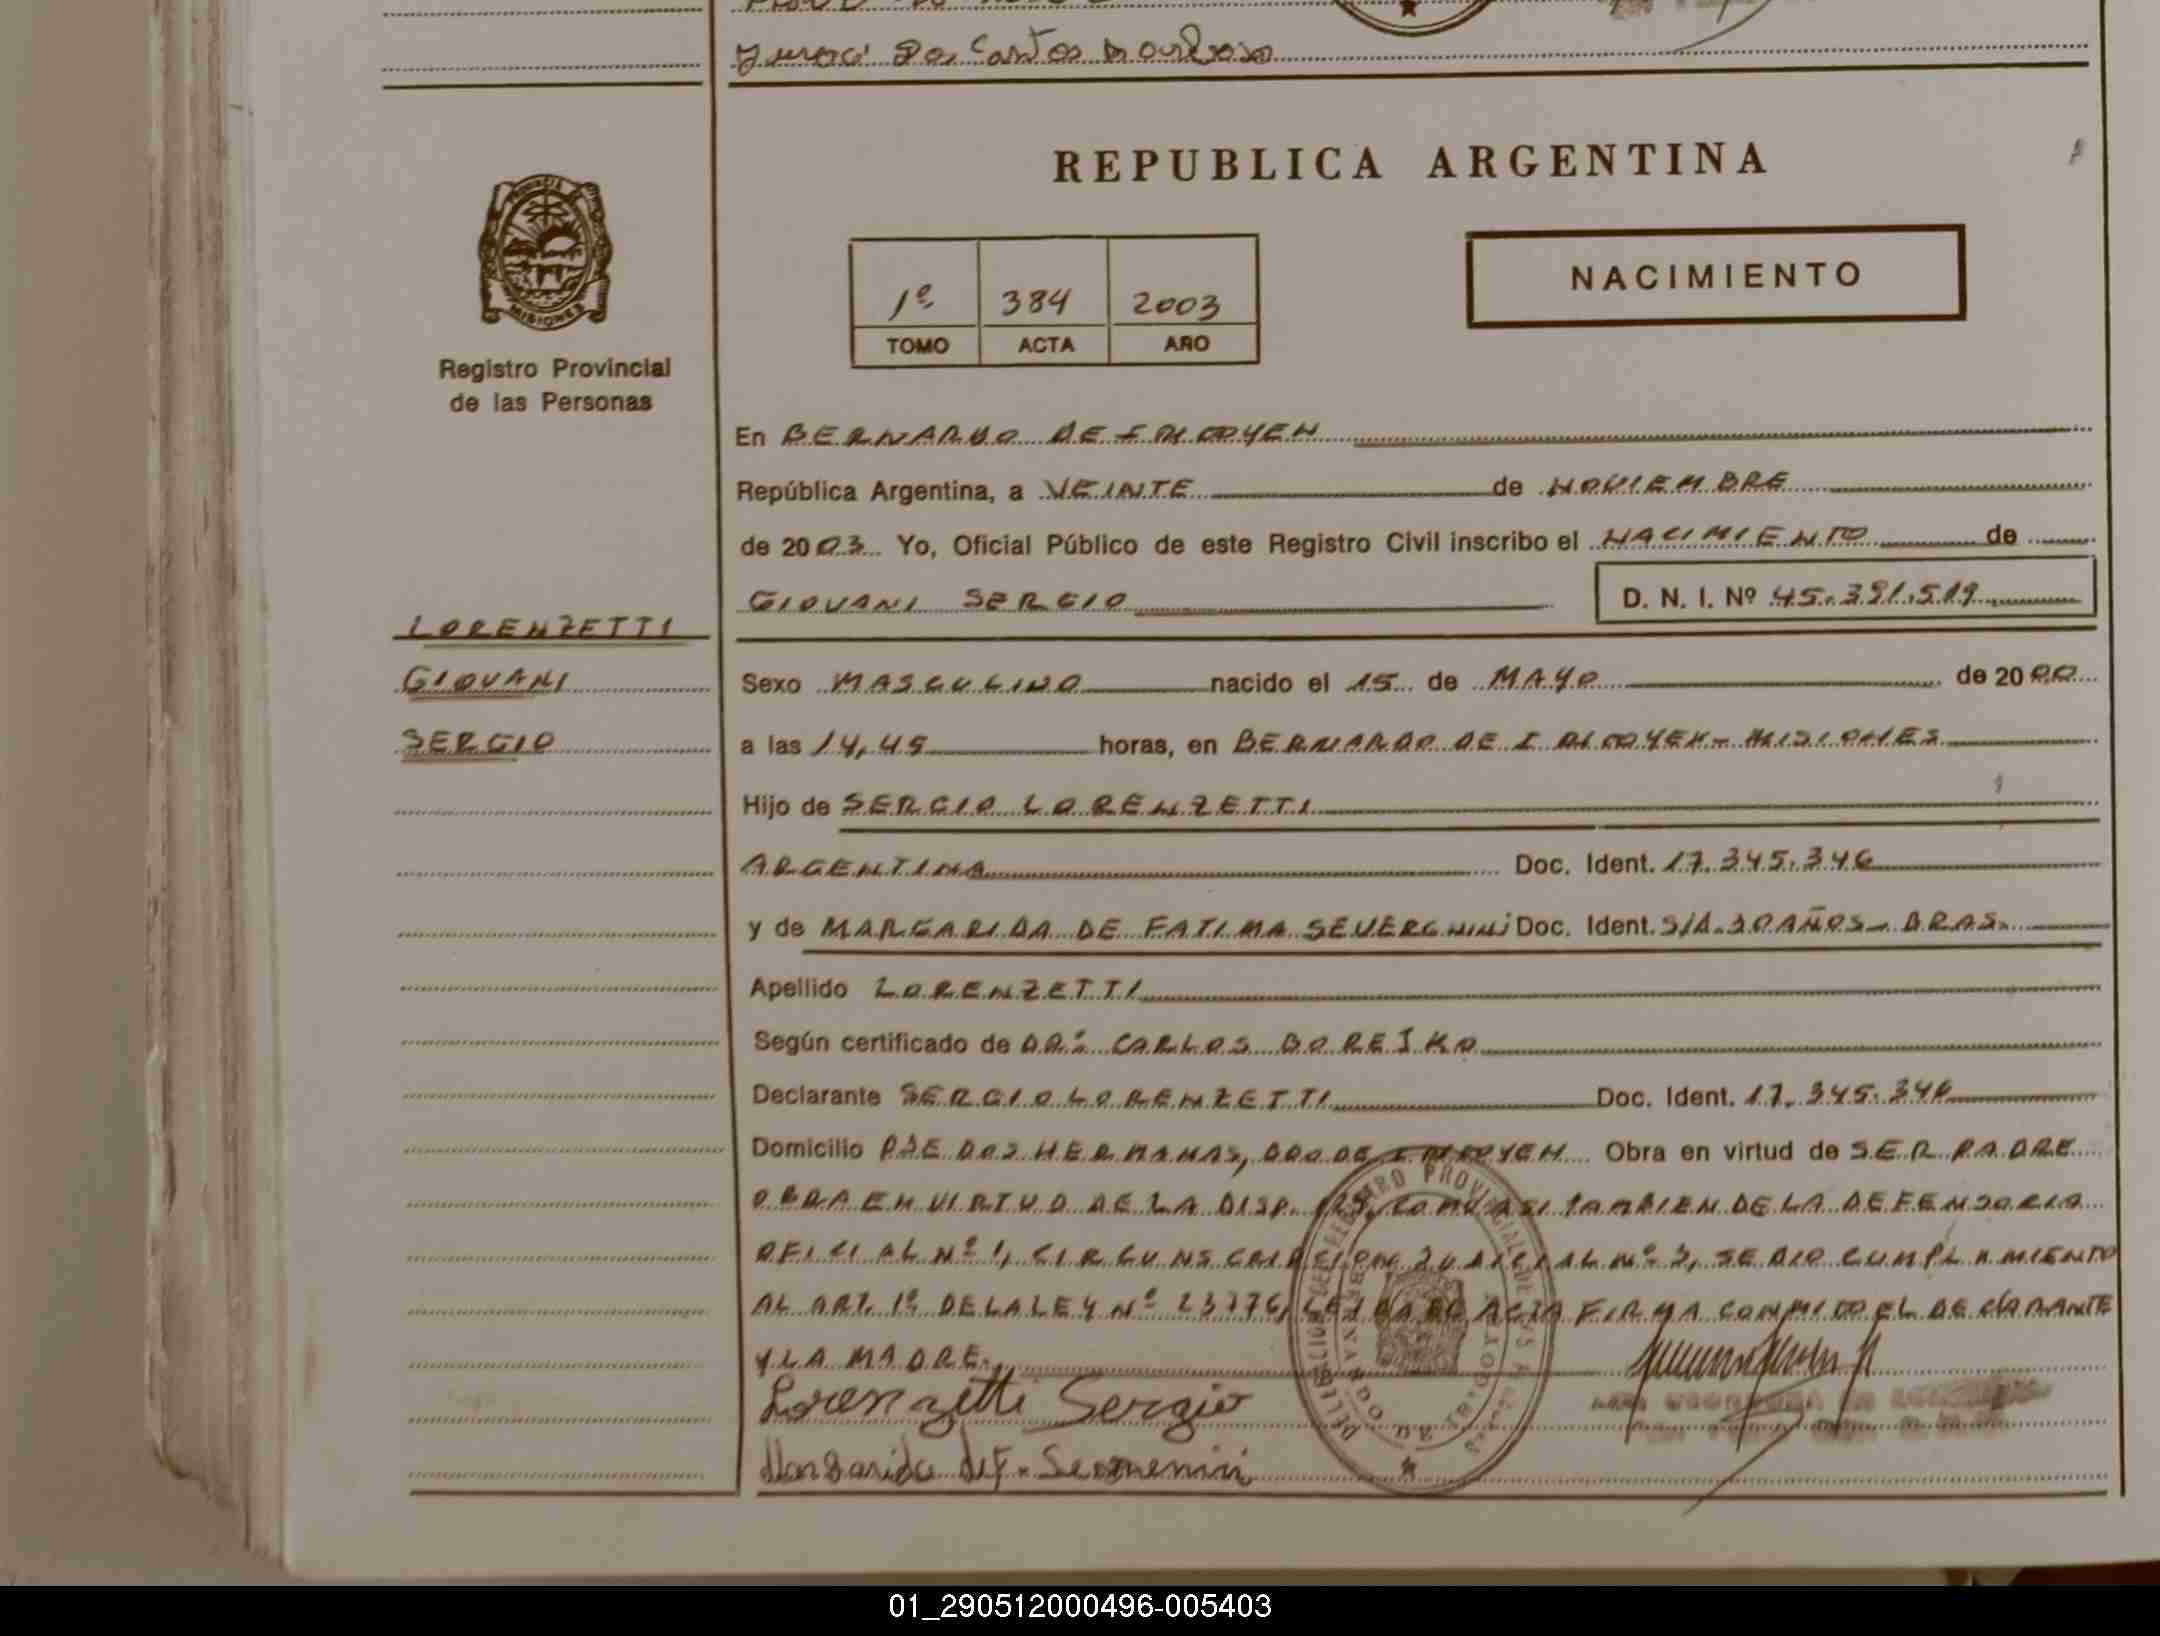 REPUBLICA ARGENTINA
NACIMIENTO
1º 384 2003
TOMO ACTA AÑO
MISIONES
Registro Provincial
de las Personas
En BERNARDO DE IRIGOYEN
República Argentina, a VEINTE de NOVIEMBRE
de 2003 Yo, Oficial Público de este Registro Civil inscribo el NACIMIENTO de
GIOVANI SERGIO D. N. I. Nº 45.391.519
LORENZETTI
GIOVANI
SERGIO
Sexo MASCULINO nacido el 15 de MAYO de 2000
a las 14,45 horas, en BERNARDO DE IRIGOYEN - MISIONES
Hijo de SERGIO LORENZETTI
ARGENTINA Doc. Ident. 17.345.346
y de MARGARIDA DE FATIMA SEVERGNINI Doc. Ident. S/D. 30 AÑOS - BRAS.
Apellido LORENZETTI
Según certificado de DR. CARLOS BOREIKO
Declarante SERGIO LORENZETTI Doc. Ident. 17.345.346
Domicilio PJE DOS HERMANAS, BDO DE IRIGOYEN Obra en virtud de SER PADRE
OBRA EN VIRTUD DE LA DISP. COMO ASI TAMBIEN DE LA DEFENSORIA
OFICIAL Nº 1, CIRCUNSCRIPCION JUDICIAL Nº 3, SE DIO CUMPLIMIENTO
AL ART. 1º DE LA LEY Nº 23776, LEIDA EL ACTA FIRMA CONMIGO EL DECLARANTE
Y LA MADRE.
Lorenzetti Sergio
Margarida de F.
01_290512000496-005403